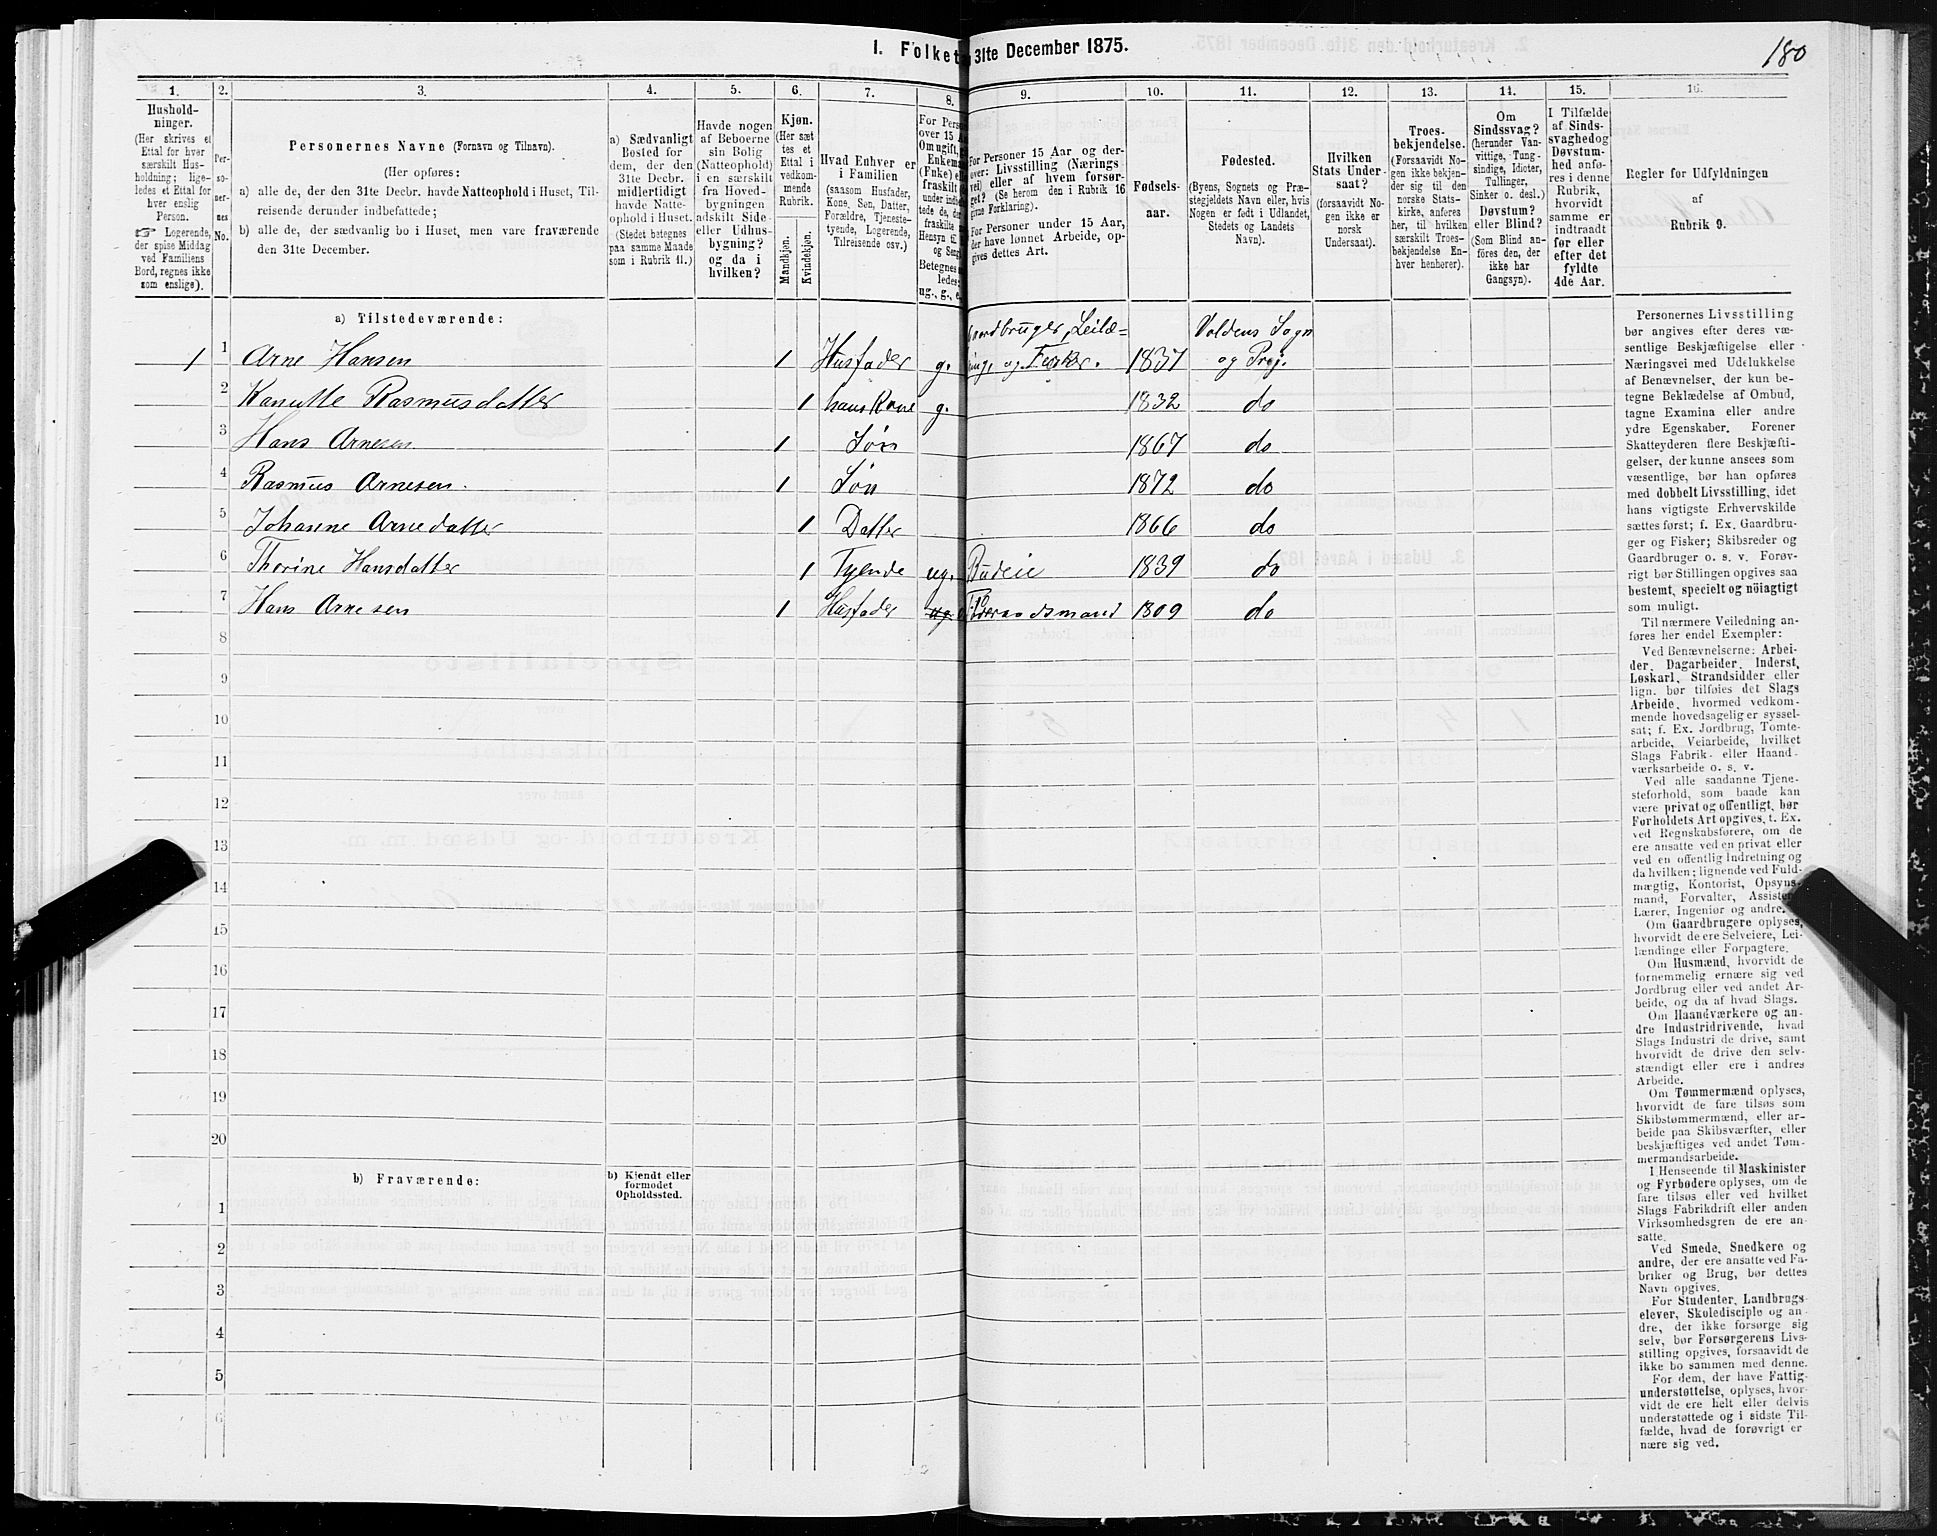 I. Folket 31te December 1875.
180
1. 2. 3. 4. 5. 6. 7. 8. 9. 10. 11. 12. 13. 14. 15. 16.
Hushold-
ninger.
(Her skrives et
Ettal for hver
særskilt Hus-
holdning; lige-
ledes et Ettal for
hver enslig
Person.
☞ Logerende,
der spise Middag
ved Familiens
Bord, regnes ikke
som enslige).
Per-
so-
ner-
nes
No.
Personernes Navne (Fornavn og Tilnavn).
(Her opføres:
a) alle de, der den 31te Decbr. havde Natteophold i Huset, Til-
reisende derunder indbefattede;
b) alle de, der sædvanlig bo i Huset, men vare fraværende
den 31te December.
a) Sædvanligt
Bosted for
dem, der den
31te Decbr.
midlertidigt
havde Natte-
ophold i Huset.
(Stedet betegnes
paa samme Maade
som i Rubrik 11.)
Havde nogen
af Beboerne
sin Bolig
(Natteophold)
i en særskilt
fra Hoved-
bygningen
adskilt Side-
eller Udhus-
bygning?
og da i
hvilken?
Kjøn.
(Her sæt
tes et
Ettal i
vedkom-
mende
Rubrik.
Mandkjøn.
Kvindekjøn.
Hvad Enhver er
i Familien
(saasom Husfader,
Kone, Søn, Datter,
Forældre, Tjeneste-
tyende, Logerende,
Tilreisende osv.)
For Pers
over 15 A
Om ugift,
Enkema
(Fnke) el
fraskilt
under indbe
tede de, d
fraskilte
Hensyn til
og Seng
Betegnes
ledes:
ug., g., e.
For Personer 15 Aar og der-
over: Livsstilling (Nærings
vei) eller af hvem forsør-
get? (Se herom den i Rubrik 16
givne Forklaring).
For Personer under 15 Aar,
der have lønnet Arbeide, op-
gives dettes Art.
Fødsels-
aar.
Fødested.
(Byens, Sognets og Præ-
stegjeldets Navn eller, hvis
Nogen er født i Udlandet,
Stedets og Landets
Navn).
Hvilken
Stats Under-
saat?
(forsaavidt No-
gen ikke er
norsk
Undersaat).
Troes-
bekjendelse.
(Forsaavidt No-
gen ikke bekjen-
der sig til den
norske Stats-
kirke, anføres
her, til hvilken
særskilt Troes-
bekjendelse En-
hver henhører).
Om
Sindssvag?
(herunder Van-
vittige, Tung-
sindige, Idioter,
Tullinger,
Sinker o. desl.)
Døvstum?
eller Blind?
(Som Blind an-
føres den, der
ikke har
Gangsyn).
I Tilfælde
af Sinds-
svaghed og
Døvstum-
hed anfø-
res i denne
Rubrik,
hvorvidt
samme er
indtraadt
før eller
efter det
fyldte
4de Aar.
Regler for Udfyldningen
af
Rubrik 9.
a) Tilstedeværende:
Gaardbruger, Leilæ= Voldens Sogn
1 1 Arne Hansen 1 Husfader g. ding og Fisker. 1837 og Prgj.
2 Kanutte Rasmusdatter 1 hans Kone g. 1832 do
3 Hans Arnesen 1 Søn 1867 do
4 Rasmus Arnesen. 1 Søn 1872 do
5 Johanne Arnedatter 1 Datter 1866 do
6 Therine Hansdatter 1 Tyende ug. Budeie 1839 do
7 Hans Arnesen 1 Husfader 1809 do
8
9
10
11
12
13
14
15
16
17
18
19
20
b) Fraværende:
b) Kjendt eller
formodet
Opholdssted.
1
2
3
4
5
6
Personernes Livsstilling
bør angives efter deres væ-
sentlige Beskjæftigelse eller
Næringsvei med Udelukkelse
af Benævnelser, der kun be-
tegne Beklædelse af Ombud,
tagne Examina eller andre
ydre Egenskaber. Forener
Skatteyderen flere Beskjæfti-
gelser, der kunne ansees som
væsentlige, bør han opføres
med dobbelt Livsstilling, idet
hans vigtigste Erhvervskilde
sættes først; f. Ex. Gaardbru-
ger og Fisker; Skibsreder og
Gaardbruger o. s. v. Forøv-
rigt bør Stillingen opgives saa
bestemt, specielt og nöiagtigt
som muligt.
Til nærmere Veiledning an-
føres her endel Exempler:
Ved Benævnelserne: Arbei-
der, Dagarbeider, Inderst,
Løskarl, Strandsidder eller
lign. bør tilføies det Slags
Arbeide, hvormed vedkom-
mende hovedsagelig er syssel-
sat; f. Ex. Jordbrug, Tomte-
arbeide, Veiarbeide, hvilket
Slags Fabrik- eller Haand-
værksarbeide o. s. v.
Ved alle saadanne Tjene-
steforhold, som baade kan
være privat og offentligt, bør
Forholdets Art opgives, t. Ex.
ved Regnskabsførere, om de
ere ansatte ved en privat eller
ved en offentlig Indretning og
da hvilken; lignende ved Fuld-
mægtig, Kontorist, Opsyns-
mand, Forvalter, Assistent,
Lærer, Ingeniør og andre.
Om Gaardbrugere oplyses,
hvorvidt de ere Selveiere, Lei-
lændinge eller Forpagtere.
Om Husmænd, hvorvidt de
fornemmelig ernære sig ved
Jordbrug eller ved andet Ar-
beide, og da af hvad Slags.
Om Haandværkere og an-
dre Industridrivende, hvad
Slags Industri de drive, samt
hvorvidt de drive den selv-
stændigt eller ere i andres
Arbeide.
Om Tømmermænd oplyses,
hvorvidt de fare tilsøs som
Skibstømmermænd, eller ar-
beide paa Skibsværfter, eller
beskjæftiges ved andet Tøm-
mermandsarbeide.
I Henseende til Maskinister
og Fyrbødere oplyses, om de
fare tilsøs eller ved hvilket
Slags Fabrikdrift eller anden
Virksomhedsgren de ere an-
satte.
Ved Smede, Snedkere og
andre, der ere ansatte ved Fa-
briker og Brug, bør dettes
Navn opgives.
For Studenter, Landbrugs-
elever, Skoledisciple og an-
dre, der ikke forsørge sig
selv, bør Forsørgerens Livs-
stilling opgives, forsaavidt de
ikke bo sammen med denne.
For dem, der have Fattig-
understøttelse, oplyses, hvor-
vidt de ere helt eller delvis
understøttede og i sidste Til-
fælde, hvad de forøvrigt er
nære sig ved.